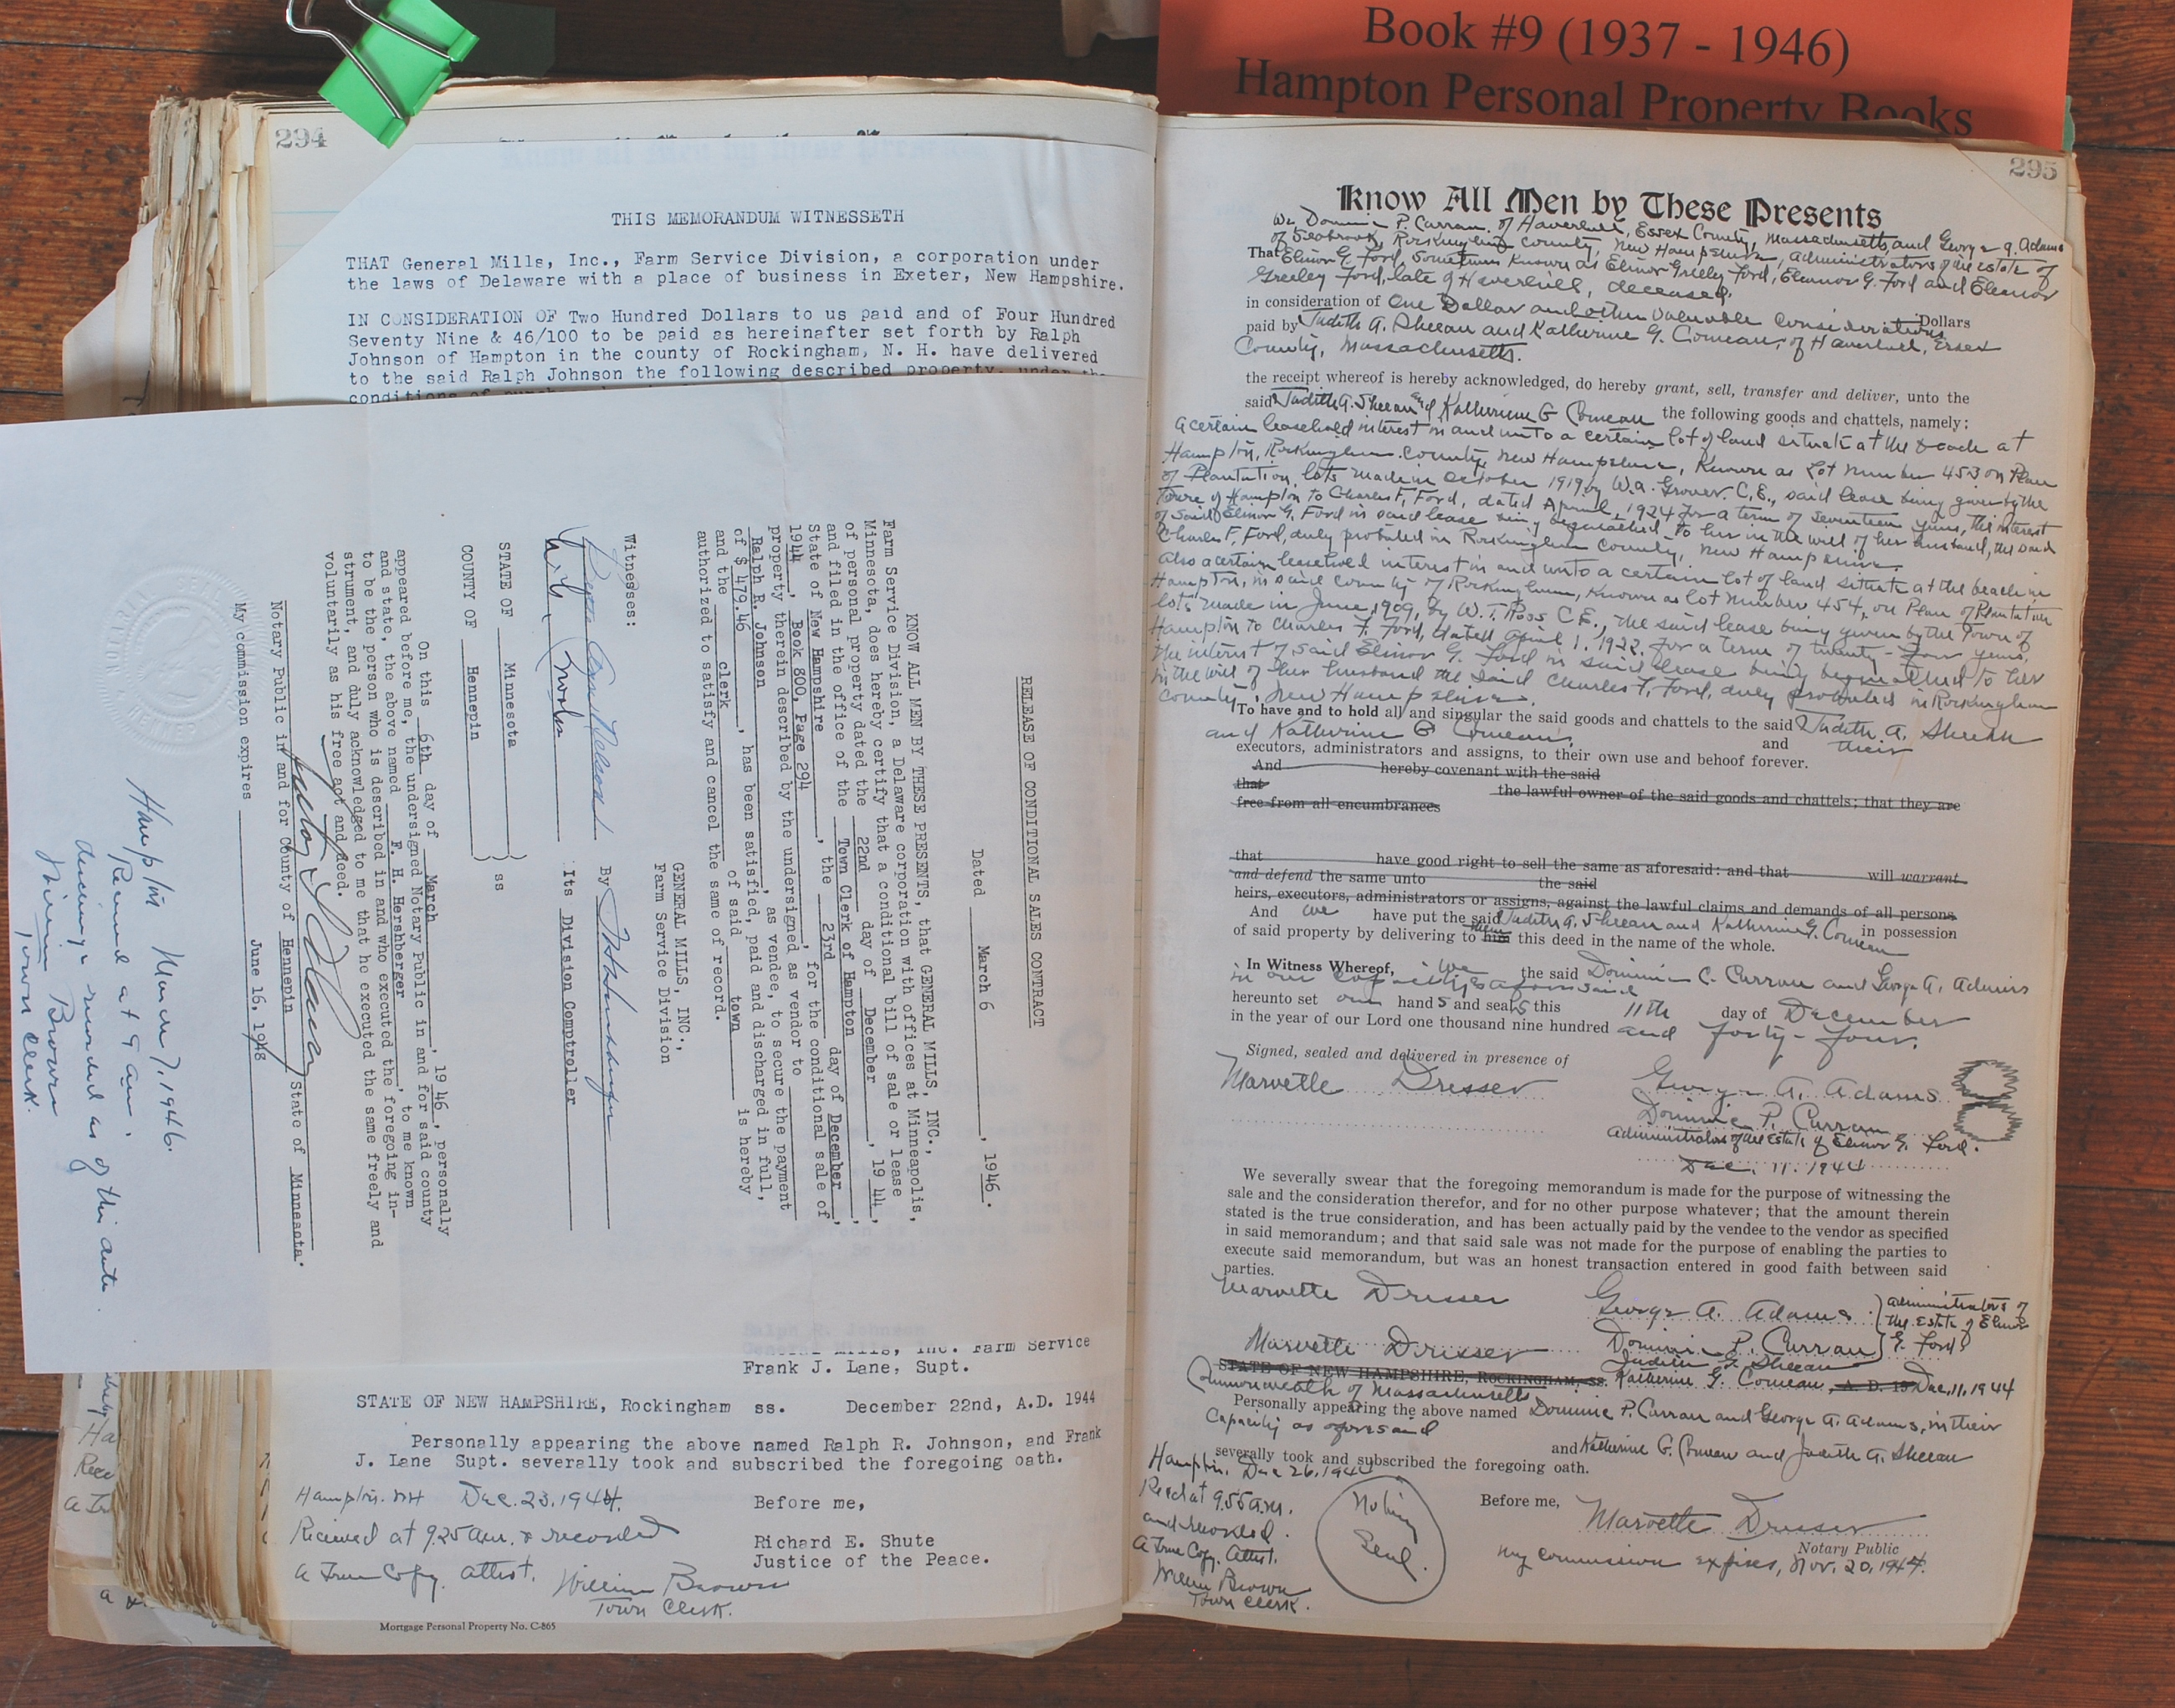 Book #9 (1937 - 1946)
Hampton Personal Property Books
294
THIS MEMORANDUM WITNESSETH
THAT General Mills, Inc., Farm Service Division, a corporation under
the laws of Delaware with a place of business in Exeter, New Hampshire.
IN CONSIDERATION OF Two Hundred Dollars to us paid and of Four Hundred
Seventy Nine & 46/100 to be paid as hereinafter set forth by Ralph
Johnson of Hampton in the county of Rockingham, N. H. have delivered
to the said Ralph Johnson the following described property, under the
conditions of
RELEASE OF CONDITIONAL SALES CONTRACT
Dated March 6, 1946.
KNOW ALL MEN BY THESE PRESENTS, that GENERAL MILLS, INC.,
Farm Service Division, a Delaware corporation with offices at Minneapolis,
Minnesota, does hereby certify that a conditional bill of sale or lease
of personal property dated the 22nd day of December, 1944,
and filed in the office of the Town Clerk of Hampton,
State of New Hampshire, the 23rd day of December,
1944, Book 800, Page 294, for the conditional sale of
property therein described by the undersigned as vendor to
Ralph R. Johnson, as vendee, to secure the payment
of $ 479.46, has been satisfied, paid and discharged in full,
and the clerk of said town is hereby
authorized to satisfy and cancel the same of record.
GENERAL MILLS, INC.,
Farm Service Division
Witnesses:
By
Its Division Comptroller
STATE OF Minnesota )
) ss
COUNTY OF Hennepin )
On this 6th day of March, 19 46, personally
appeared before me, the undersigned Notary Public in and for said county
and state, the above named F. H. Hershberger, to me known
to be the person who is described in and who executed the foregoing in-
strument, and duly acknowledged to me that he executed the same freely and
voluntarily as his free act and deed.
Notary Public in and for County of Hennepin State of Minnesota.
My commission expires June 16, 1948
Hampton March 7, 1946.
Received at 9 am.
discharge recorded as of this date.
William Brown
Town Clerk.
General Mills, Inc. Farm Service
Frank J. Lane, Supt.
STATE OF NEW HAMPSHIRE, Rockingham ss. December 22nd, A.D. 1944
Personally appearing the above named Ralph R. Johnson, and Frank
J. Lane Supt. severally took and subscribed the foregoing oath.
Hampton. NH Dec. 23, 1944.
Before me,
Recieved at 9.25 am. & recorded
Richard E. Shute
Justice of the Peace.
A True Copy, attest. William Brown
Town Clerk.
Mortgage Personal Property No. C-865
295
Know All Men by These Presents
We Dominic P. Curran of Haverhill, Essex County, Massachusetts and George A. Adams
of Seabrook, Rockingham County, New Hampshire, Administrators of the estate of
That Elinor G. Ford, sometimes known as Elinor Greely Ford, Eleanor G. Ford and Eleanor
Greeley Ford, late of Haverhill, deceased.
in consideration of One Dollar and other valuable considerations Dollars
paid by Judith A. Sheean and Katherine G. Comeau, of Haverhill, Essex
County, Massachusetts.
the receipt whereof is hereby acknowledged, do hereby grant, sell, transfer and deliver, unto the
said Judith A. Sheean and Katherine G Comeau the following goods and chattels, namely:
A certain leasehold interest in and unto a certain lot of land situate at the beach at
Hampton, Rockingham County, New Hampshire, Known as Lot Number 453 on Plan
of Plantation lots made in October 1919 by W.A. Grover. C.E., said lease being given by the
Town of Hampton to Charles F. Ford, dated April 1, 1924 for a term of seventeen years, the interest
of said Elinor G. Ford in said lease being bequeathed to her in the will of her husband, the said
Charles F. Ford, duly probated in Rockingham County, New Hampshire.
Also a certain leasehold interest in and unto a certain lot of land situate at the beach in
Hampton, in said County of Rockingham, Known as lot number 454, on Plan of Plantation
lots made in June, 1909, by W. T. Ross C.E., the said lease being given by the Town of
Hampton to Charles F. Ford, dated April 1, 1922. for a term of twenty-four years,
the interest of said Elinor G. Ford in said lease being bequeathed to her
in the will of her husband the said Charles F. Ford, duly probated in Rockingham
County, New Hampshire.
To have and to hold all and singular the said goods and chattels to the said Judith A. Sheean
and Katherine G Comeau, and their
executors, administrators and assigns, to their own use and behoof forever.
And hereby covenant with the said
that the lawful owner of the said goods and chattels; that they are
free from all encumbrances
that have good right to sell the same as aforesaid: and that will warrant
and defend the same unto the said
heirs, executors, administrators or assigns, against the lawful claims and demands of all persons
And we have put the said Judith A. Sheean and Katherine G. Comeau in possession
of said property by delivering to him them this deed in the name of the whole.
In Witness Whereof, we the said Dominic C. Curran and George A. Adams
in our capacity as aforesaid
hereunto set our hands and seals this 11th day of December
in the year of our Lord one thousand nine hundred and forty-four.
Signed, sealed and delivered in presence of
Marvette Dresser
George A. Adams
Dominic P. Curran
Administrators of the Estate of Elinor G. Ford.
Dec. 11. 1944
We severally swear that the foregoing memorandum is made for the purpose of witnessing the
sale and the consideration therefor, and for no other purpose whatever; that the amount therein
stated is the true consideration, and has been actually paid by the vendee to the vendor as specified
in said memorandum; and that said sale was not made for the purpose of enabling the parties to
execute said memorandum, but was an honest transaction entered in good faith between said
parties.
Marvette Dresser
George A. Adams } Administrators of
the Estate of Elinor
Marvette Dresser
Dominic P. Curran } G. Ford
Judith A. Sheean
STATE OF NEW HAMPSHIRE, ROCKINGHAM, SS. Katherine G. Comeau A. D. 19 Dec, 11, 1944
Commonwealth of Massachusetts
Personally appearing the above named Dominic P. Curran and George A. Adams, in their
Capacity as aforesaid
and Katherine G. Comeau and Judith A. Sheean
severally took and subscribed the foregoing oath.
Hampton. Dec 26, 1944
Recd at 9.55 a.m.
and recorded.
A True Copy. Attest.
William Brown
Town Clerk.
Notary
Seal.
Before me,
Marvette Dresser
Notary Public
My commission expires, Nov. 20, 1947.